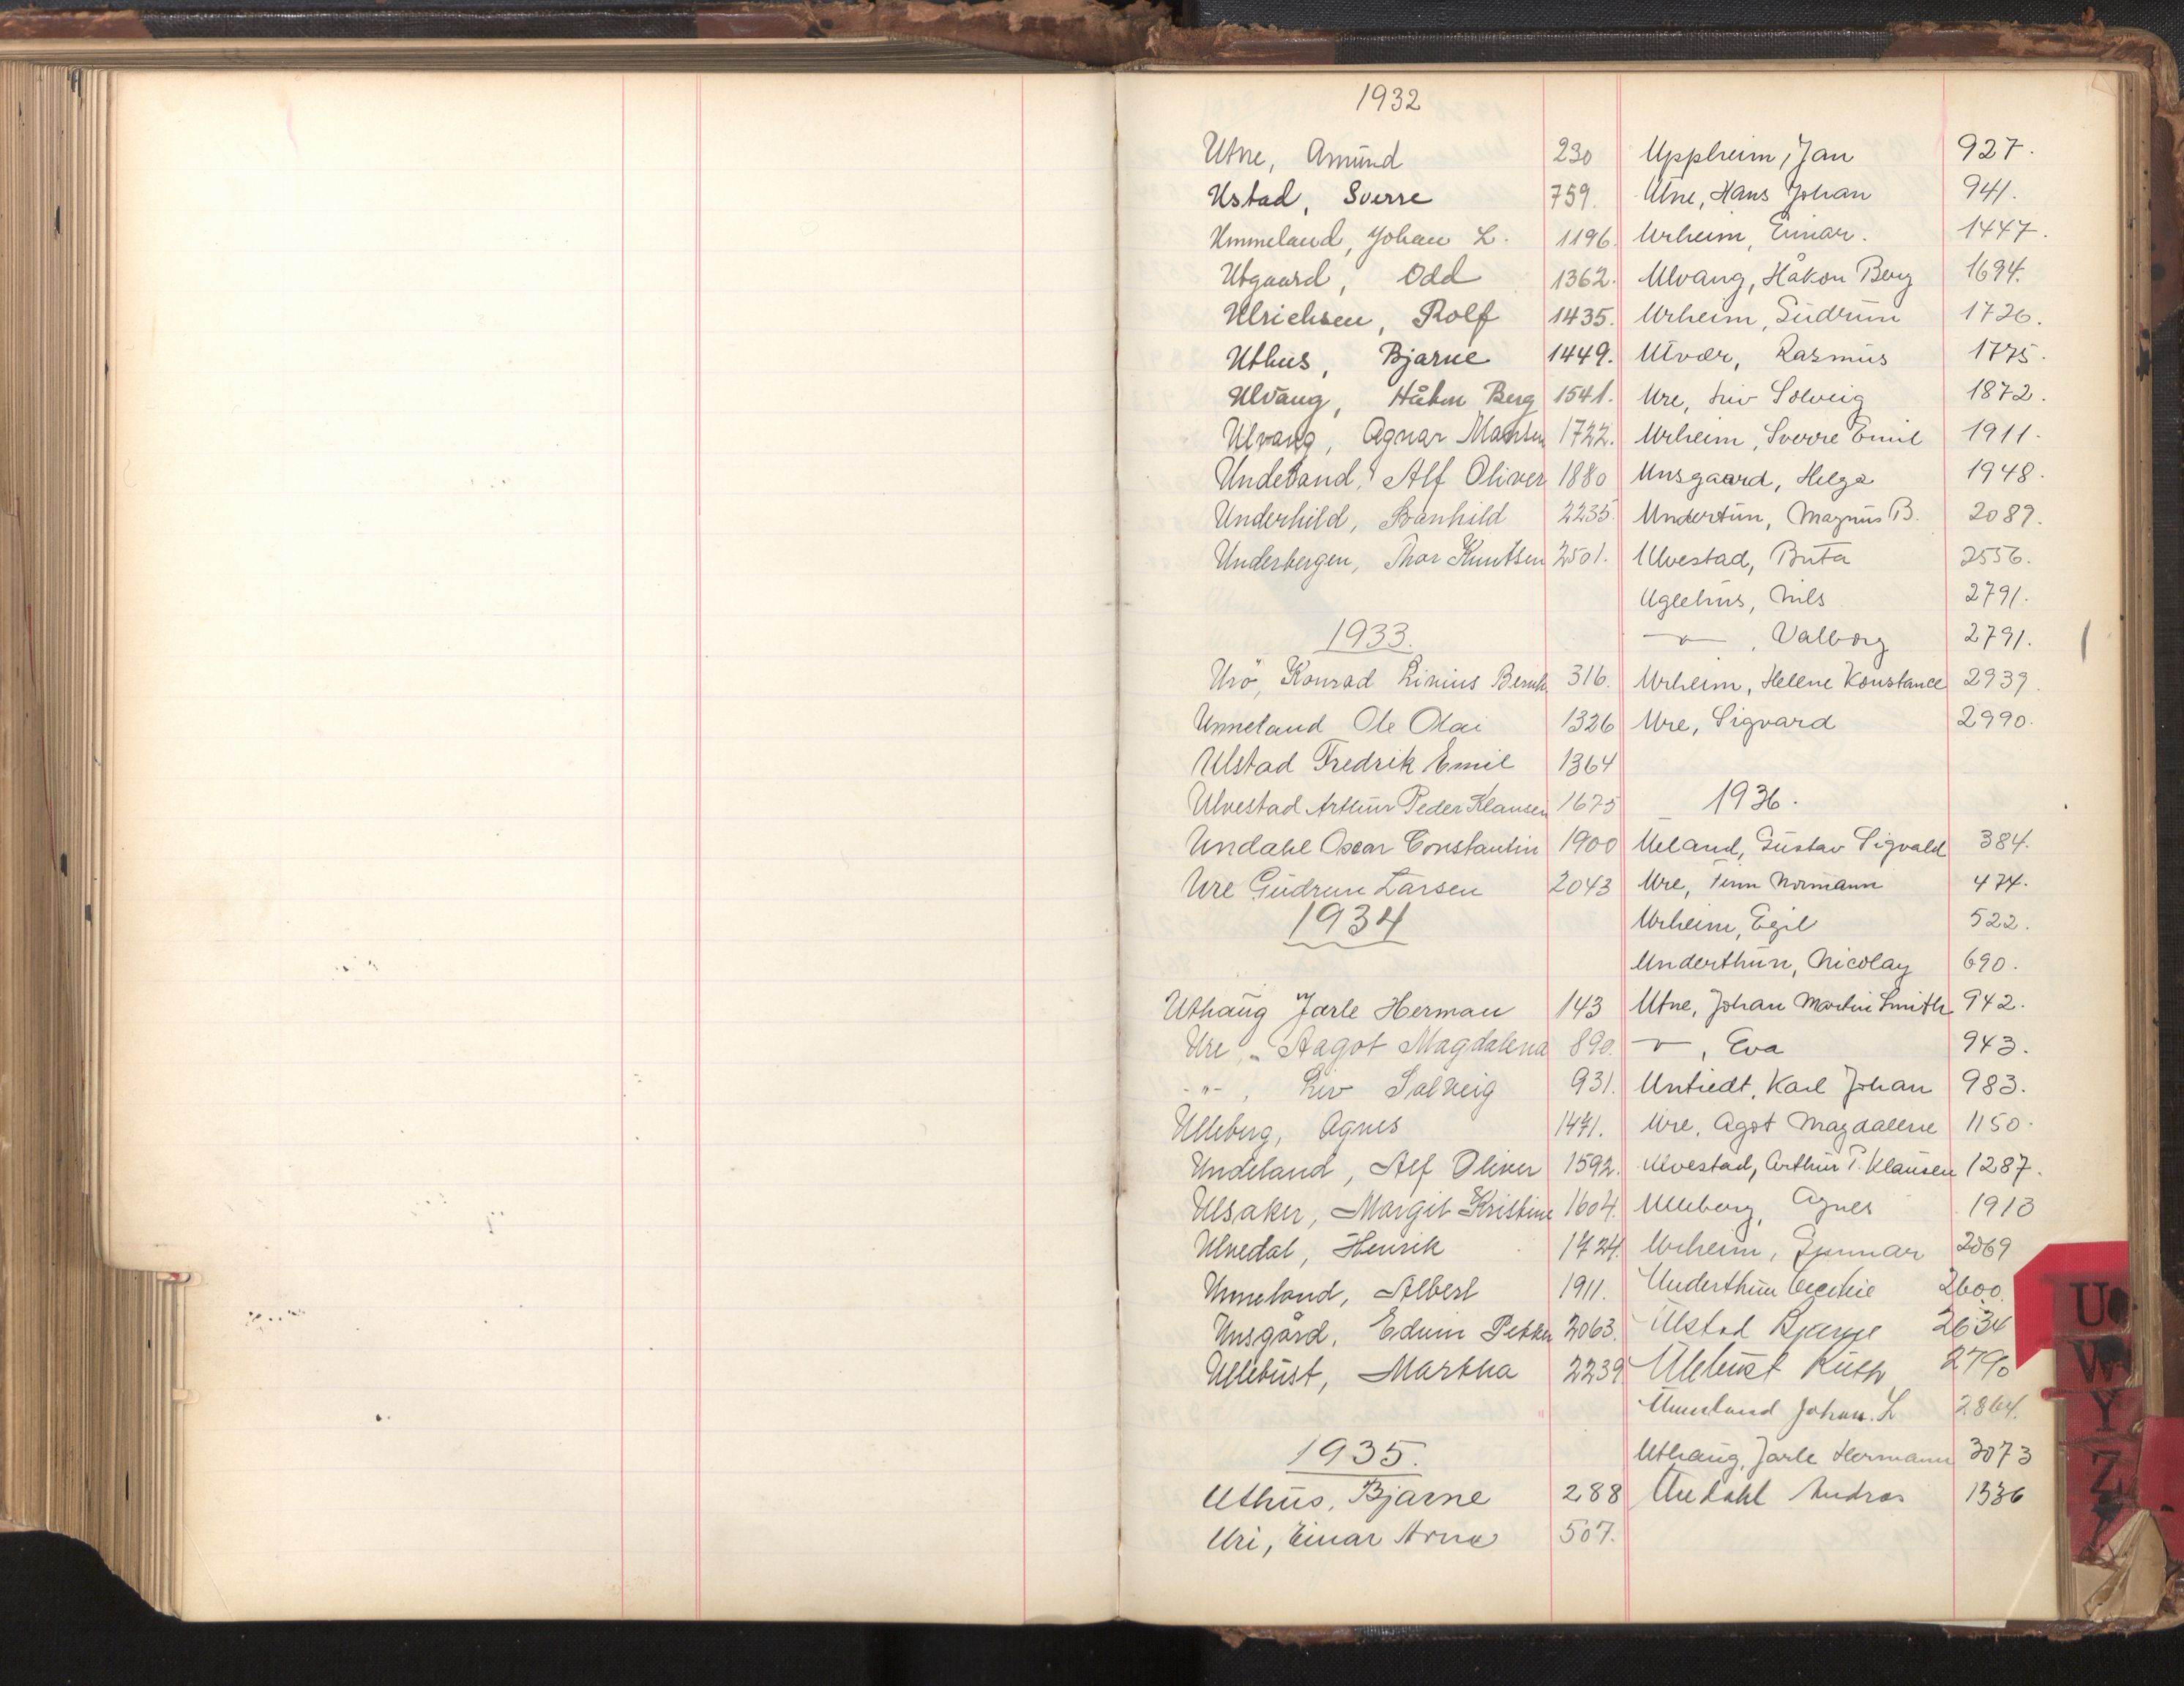 1932
Utne, Amund 230
Ustad, Sverre 759.
Ummeland, Johan L. 1196.
Utgaard, Odd 1362.
Ulrichsen, Rolf 1435.
Uthus, Bjarne 1449.
Ulvang, Håkon Berg 1541.
Ulvang, Agnar 1722.
Undeland, Alf Oliver 1880
Underhild, Svanhild 2235.
Underbergen, Thor Knutsen 2501.
1933.
Urö, Konrad Linius 316.
Unneland Ole Olai 1326
Ulstad Fredrik Emil 1364
Ulvestad Arthur Peder Klausen 1675
Undahl Oscar Constantin 1900
Ure Gudrun Larsen 2043
1934
Uthaug Jarle Herman 143
Ure, Aagot Magdalena 890.
-"-, Liv Solveig 931.
Ulleberg, Agnes 1471.
Undeland, Alf Oliver 1592.
Ulsaker, Margit Kristine 1604.
Ulvedal, Henrik 1724.
Unneland, Albert 1911.
Unsgård, Edvin Petter 2063.
Ullebust, Martha 2239
1935.
Uthus, Bjarne 288
Uri, Einar Arne 507.
Uppheim, Jan 927.
Utne, Hans Johan 941.
Urheim, Einar. 1447.
Ulvang, Håkon Berg 1694.
Urheim, Gudrun 1726.
Utvær, Rasmus 1775.
Ure, Liv Solveig 1872.
Urheim, Sverre Emil 1911.
Unsgaard, Helga 1948.
Undertun, Magnus B. 2089.
Ulvestad, Bruta 2556.
Uglehus, Nils 2791.
—"—, Valborg 2791.
Urheim, Helene Konstance 2939.
Ure, Sigvard 2990.
1936.
Ueland, Gustav Sigvald 384.
Ure, Finn Normann 474.
Urheim, Egil 522.
Underthun, Nicolay 690.
Utne, Johan Martin Smith 942.
—"—, Eva 943.
Untiedt, Karl Johan 983.
Ure, Agot Magdalene 1150.
Ulvestad, Arthur P. Klausen 1287.
Ulleberg, Agnes 1913
Urheim, Gunnar 2069
Underthun 2600.
Ulstad Bjarne 2634
Ullebust Ruth 2790
Ummeland Johan. L 2864.
Uthaug, Jarle Hermann 3073
Undahl Andras 1336
U
W
Y
Z